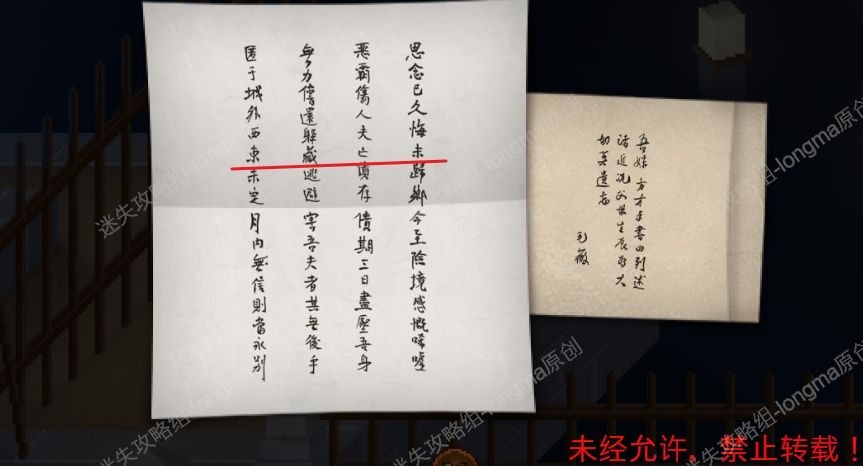 思念已久悔未歸鄉今至險境感慨唏噓
惡霸傷人夫亡債存債期三日盡壓吾身
無力償還躲藏逃避害吾夫者其無後乎
匿于城外西東未定月內無信則當永別
吾妹 方才手書四列述
諸近況父母生辰存大
切莫遺忘
毛薇
迷失攻略组-longma原创
未经允许，禁止转载！